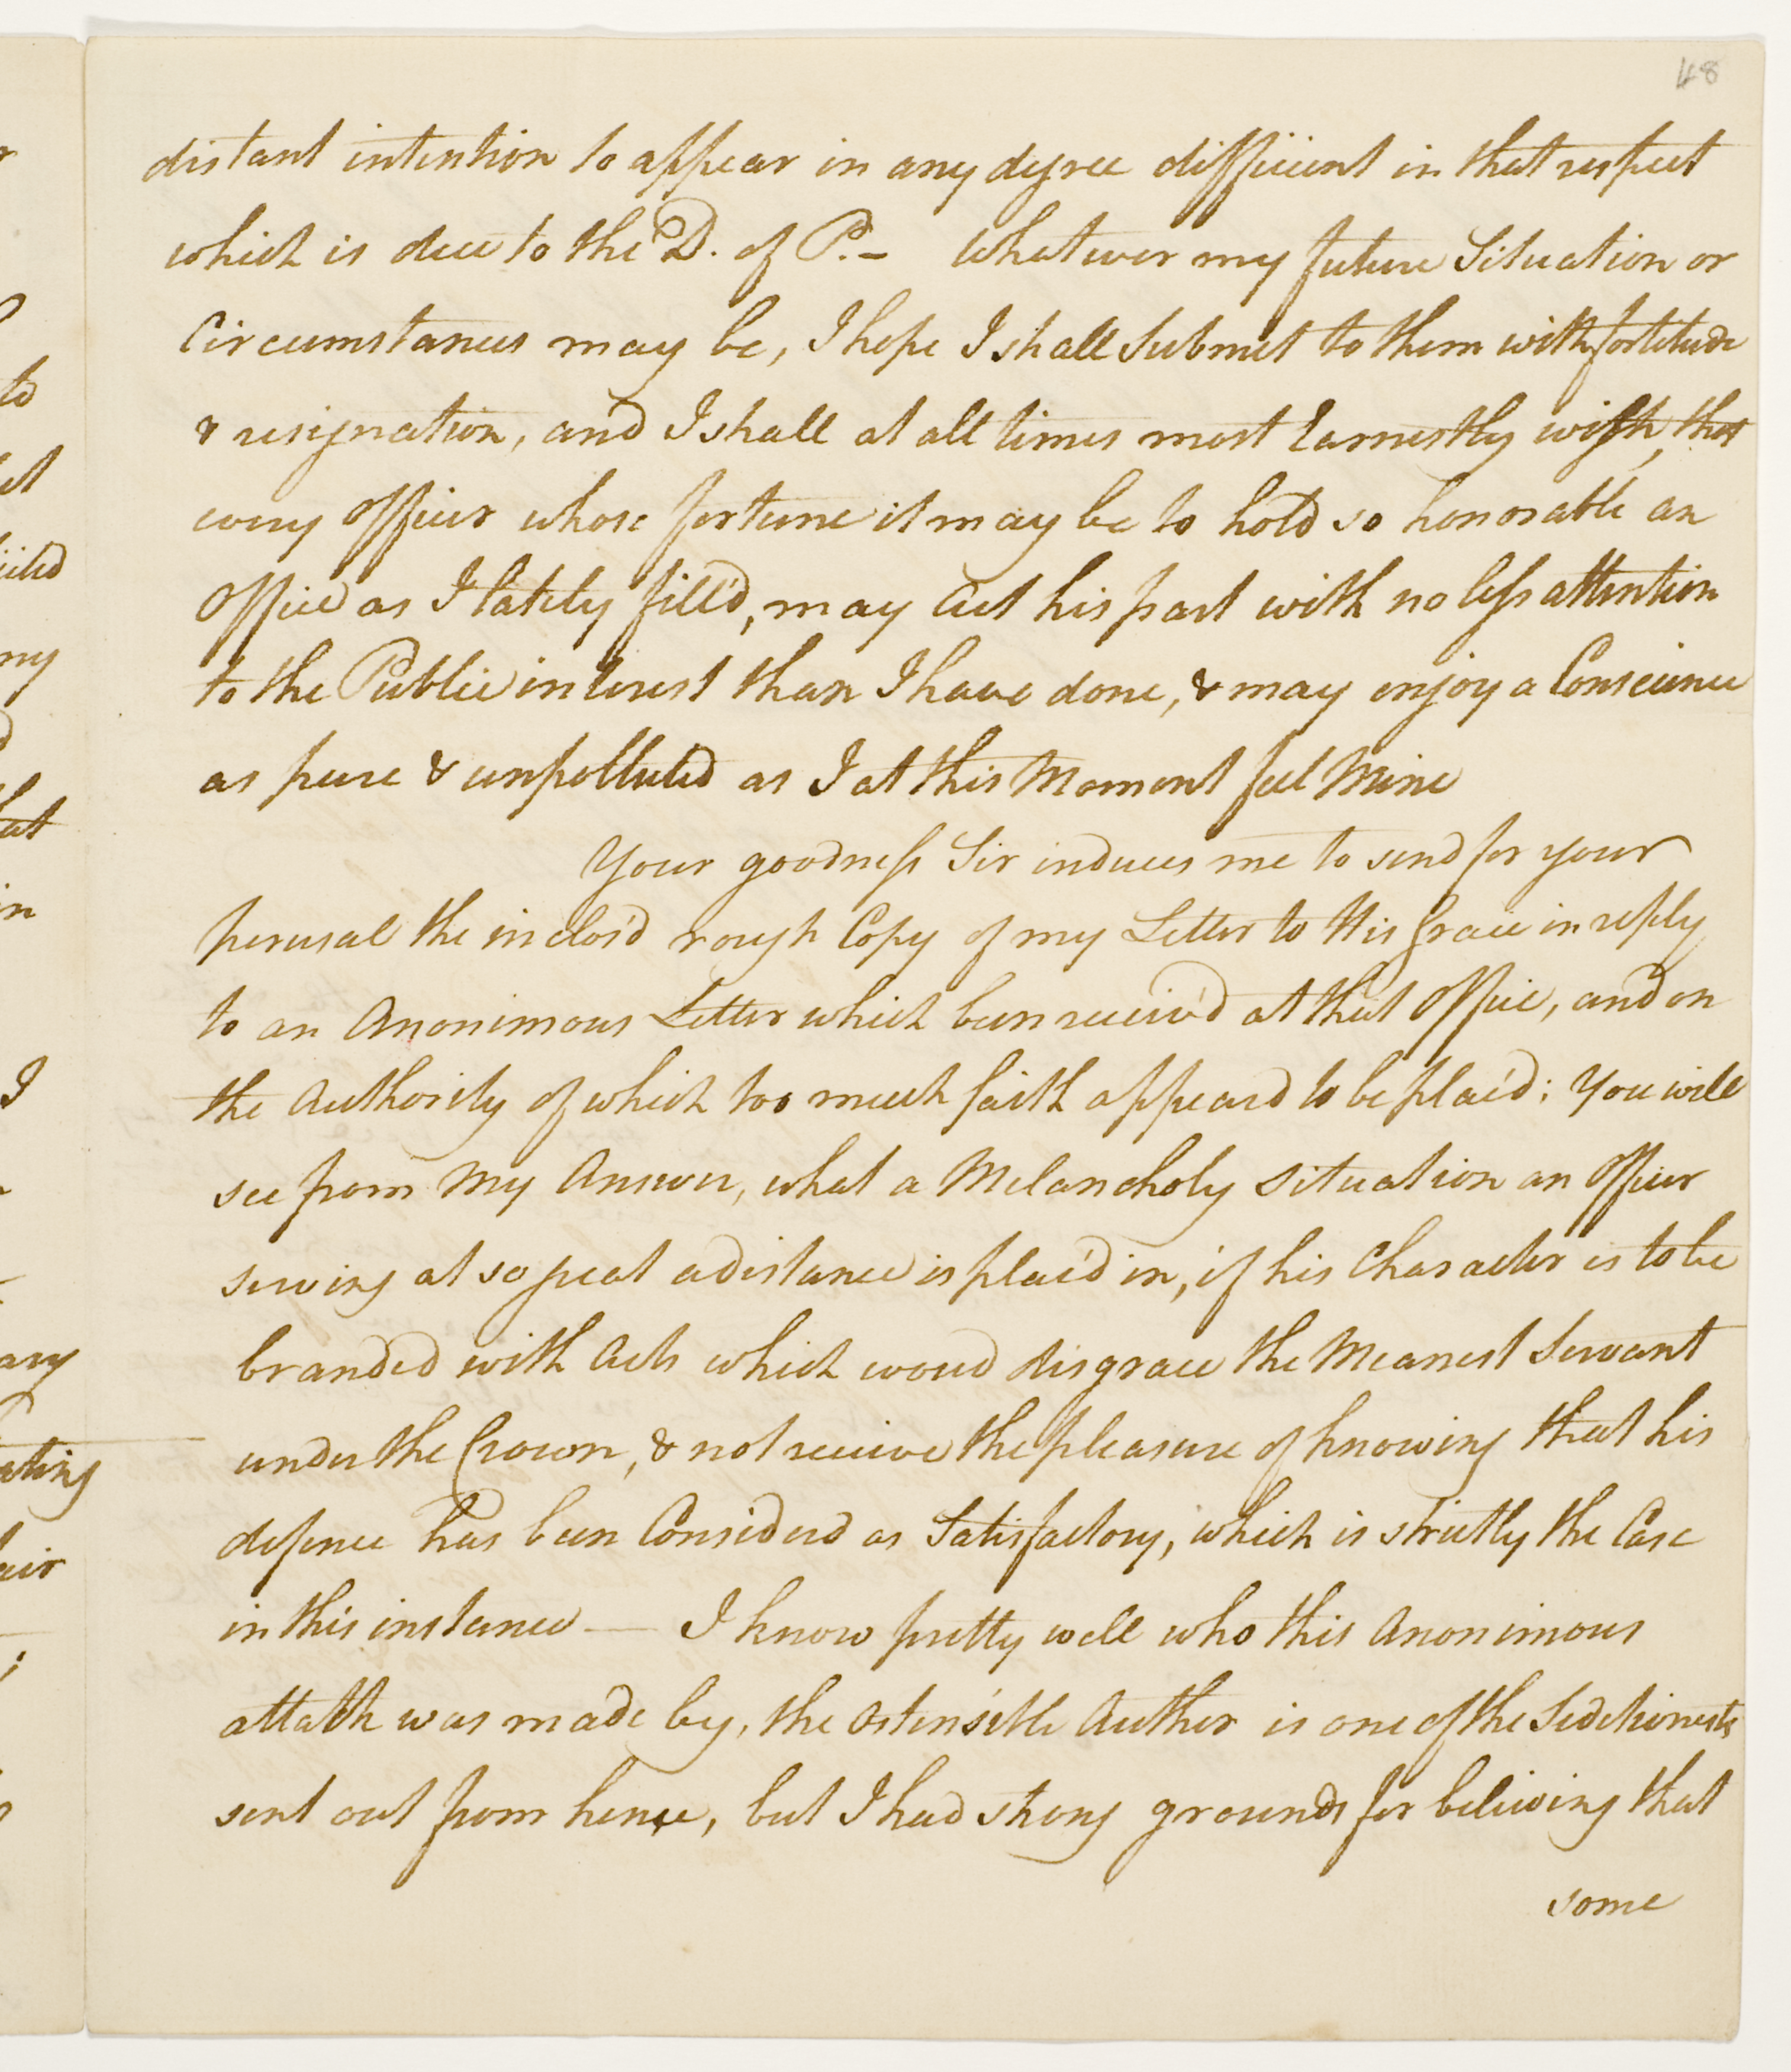 48
distant intention to appear in any degree difficient in that respect
which is due to the D. of P. – Whatever my future Situation or
Circumstances may be, I hope I shall Submit to them with fortitude
& resignation, and I shall at all times most Earnestly wish, that
every Officer whose fortune it may be to hold so honorable an
Office as I lately fill'd, may Act his part with no less attention
to the Public interest than I have done, & may enjoy a Conscience
as pure & unpolluted as I at this Moment feel Mine
Your goodness Sir induces me to send for your
perusal the inclos'd rough Copy of my Letter to His Grace in reply
to an Anonimous Letter which been receiv'd at that Office, and on
the Authority of which too much faith appeard to be plac'd; You will
see from My Answer, what a Melancholy situation an Officer
serving at so great a distance is plac'd in, if his Character is to be
branded with Acts which woud disgrace the Meanest Servant
under the Crown, & not receive the pleasure of knowing that his
defence has been Considerd as Satisfactory, which is strictly the Case
in this instance — I know pretty well who this Anonimous
attack was made by, the ostensible Author is one of the Seditionests
sent out from hence, but I had strong grounds for believing that
some